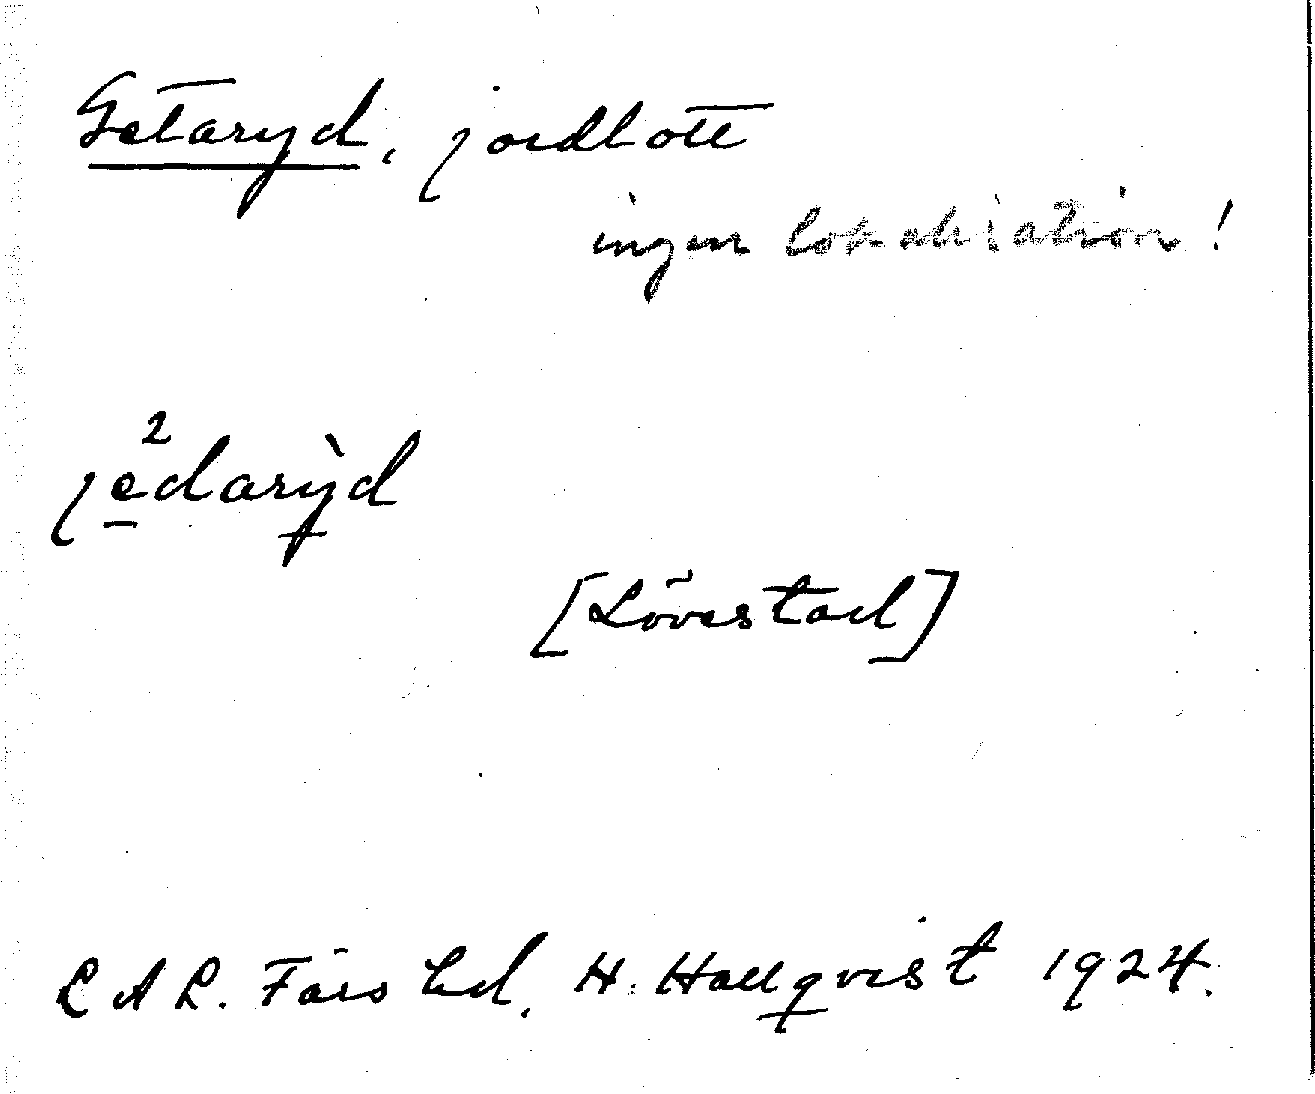 Getaryd, jordlott
ingen lokalisation!
je̱²darỳd
[Lövestad]
LAL. Färs hd, H. Hallqvist 1924.